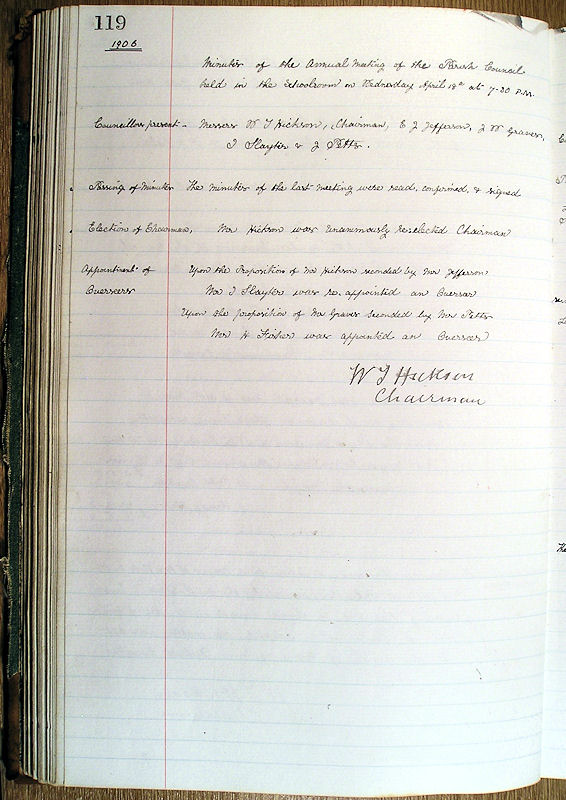 119
1906
Minutes of the Annual Meeting of the Parish Council
held in the Schoolroom on Wednesday April 18th at 7-30 P.M.
Councillors present - Messrs W T Hickson, Chairman, E J Jefferson, J W Graves,
T Slayter & J Petts.
Passing of Minutes The minutes of the last meeting were read, confirmed, & signed
Election of Chairman, Mr Hickson was unanimously re-elected Chairman
Appointment of Upon the Proposition of Mr Hickson seconded by Mr Jefferson
Overseers Mr T Slayter was re-appointed an Overseer
Upon the proposition of Mr Graves seconded by Mr Petts
Mr H Fisher was appointed an Overseer
W T Hickson
Chairman